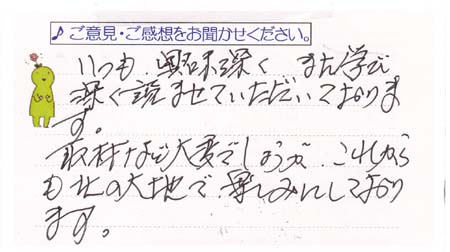 ♪ご意見・ご感想をお聞かせください。
いつも 興味深く また学び
深く読ませていただいておりま
す。
取材など大変でしょうが、これから
も北の大地で 楽しみにしており
ます。